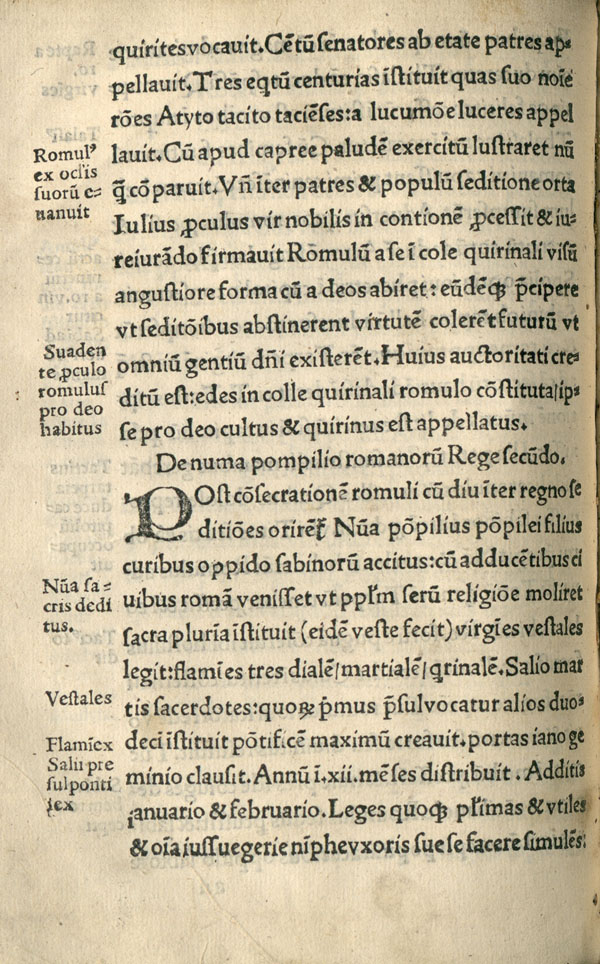 quirites vocauit. Cētū senatores ab etate patres ap⸗
pellauit. Tres eqtū centurias īstituit quas suo noīe
rōes A tyto tacito taciēses: a lucumōe luceres appel
lauit. Cū apud capree paludē exercitū lustraret nū
q̄ cōparuit. Vn̄ īter patres & populū seditione orta
Iulius ꝓculus vir nobilis in contionē ꝓcessit & iu⸗
reiurādo firmauit Romulū a se ī cole quirinali visū
angustiore forma cū a deos abiret: eūdēqꝫ p̄cipere
vt seditōibus abstinerent virtutē colerēt futurū vt
omniū gentiū dn̄i existerēt. Huius auctoritati cre⸗
ditū est: edes in colle quirinali romulo cōstituta/ ip⸗
se pro deo cultus & quirinus est appellatus.
De numa pompilio romanorū Rege secūdo.
POst cōsecrationē romuli cū diu īter regno se
ditiōes orirēt̄ Nūa pōpilius pōpilei filius
curibus oppido sabinorū accitus: cū aducētibus ci
uibus romā venisset vt pp̄lm̄ ferū religiōe moliret
sacra plurīa īstituit (eidē veste fecit) virgīes vestales
legit: flamīes tres dialē/ martialē/ qrinalē. Salio mar
tis sacerdotes: quoꝝ p̄mus p̄sul vocatur alios duo⸗
deci īstituit pōtificē maximū creauit. portas iano ge
minio clausit. Annū ī. xii. mēses distribuit. Additis
ianuario & februario. Leges quoqꝫ pl̄imas & vtiles
& oīa iussu egerie nīphe vxoris sue se facere simulēs:
Romulꝰ
ex oclis
suorū e⸗
uanuit
Suaden
te ꝓculo
romulus
pro deo
habitus
Nūa sa⸗
cris dedi
tus.
Vestales
Flamīex
Salii pre
sul ponti
fex